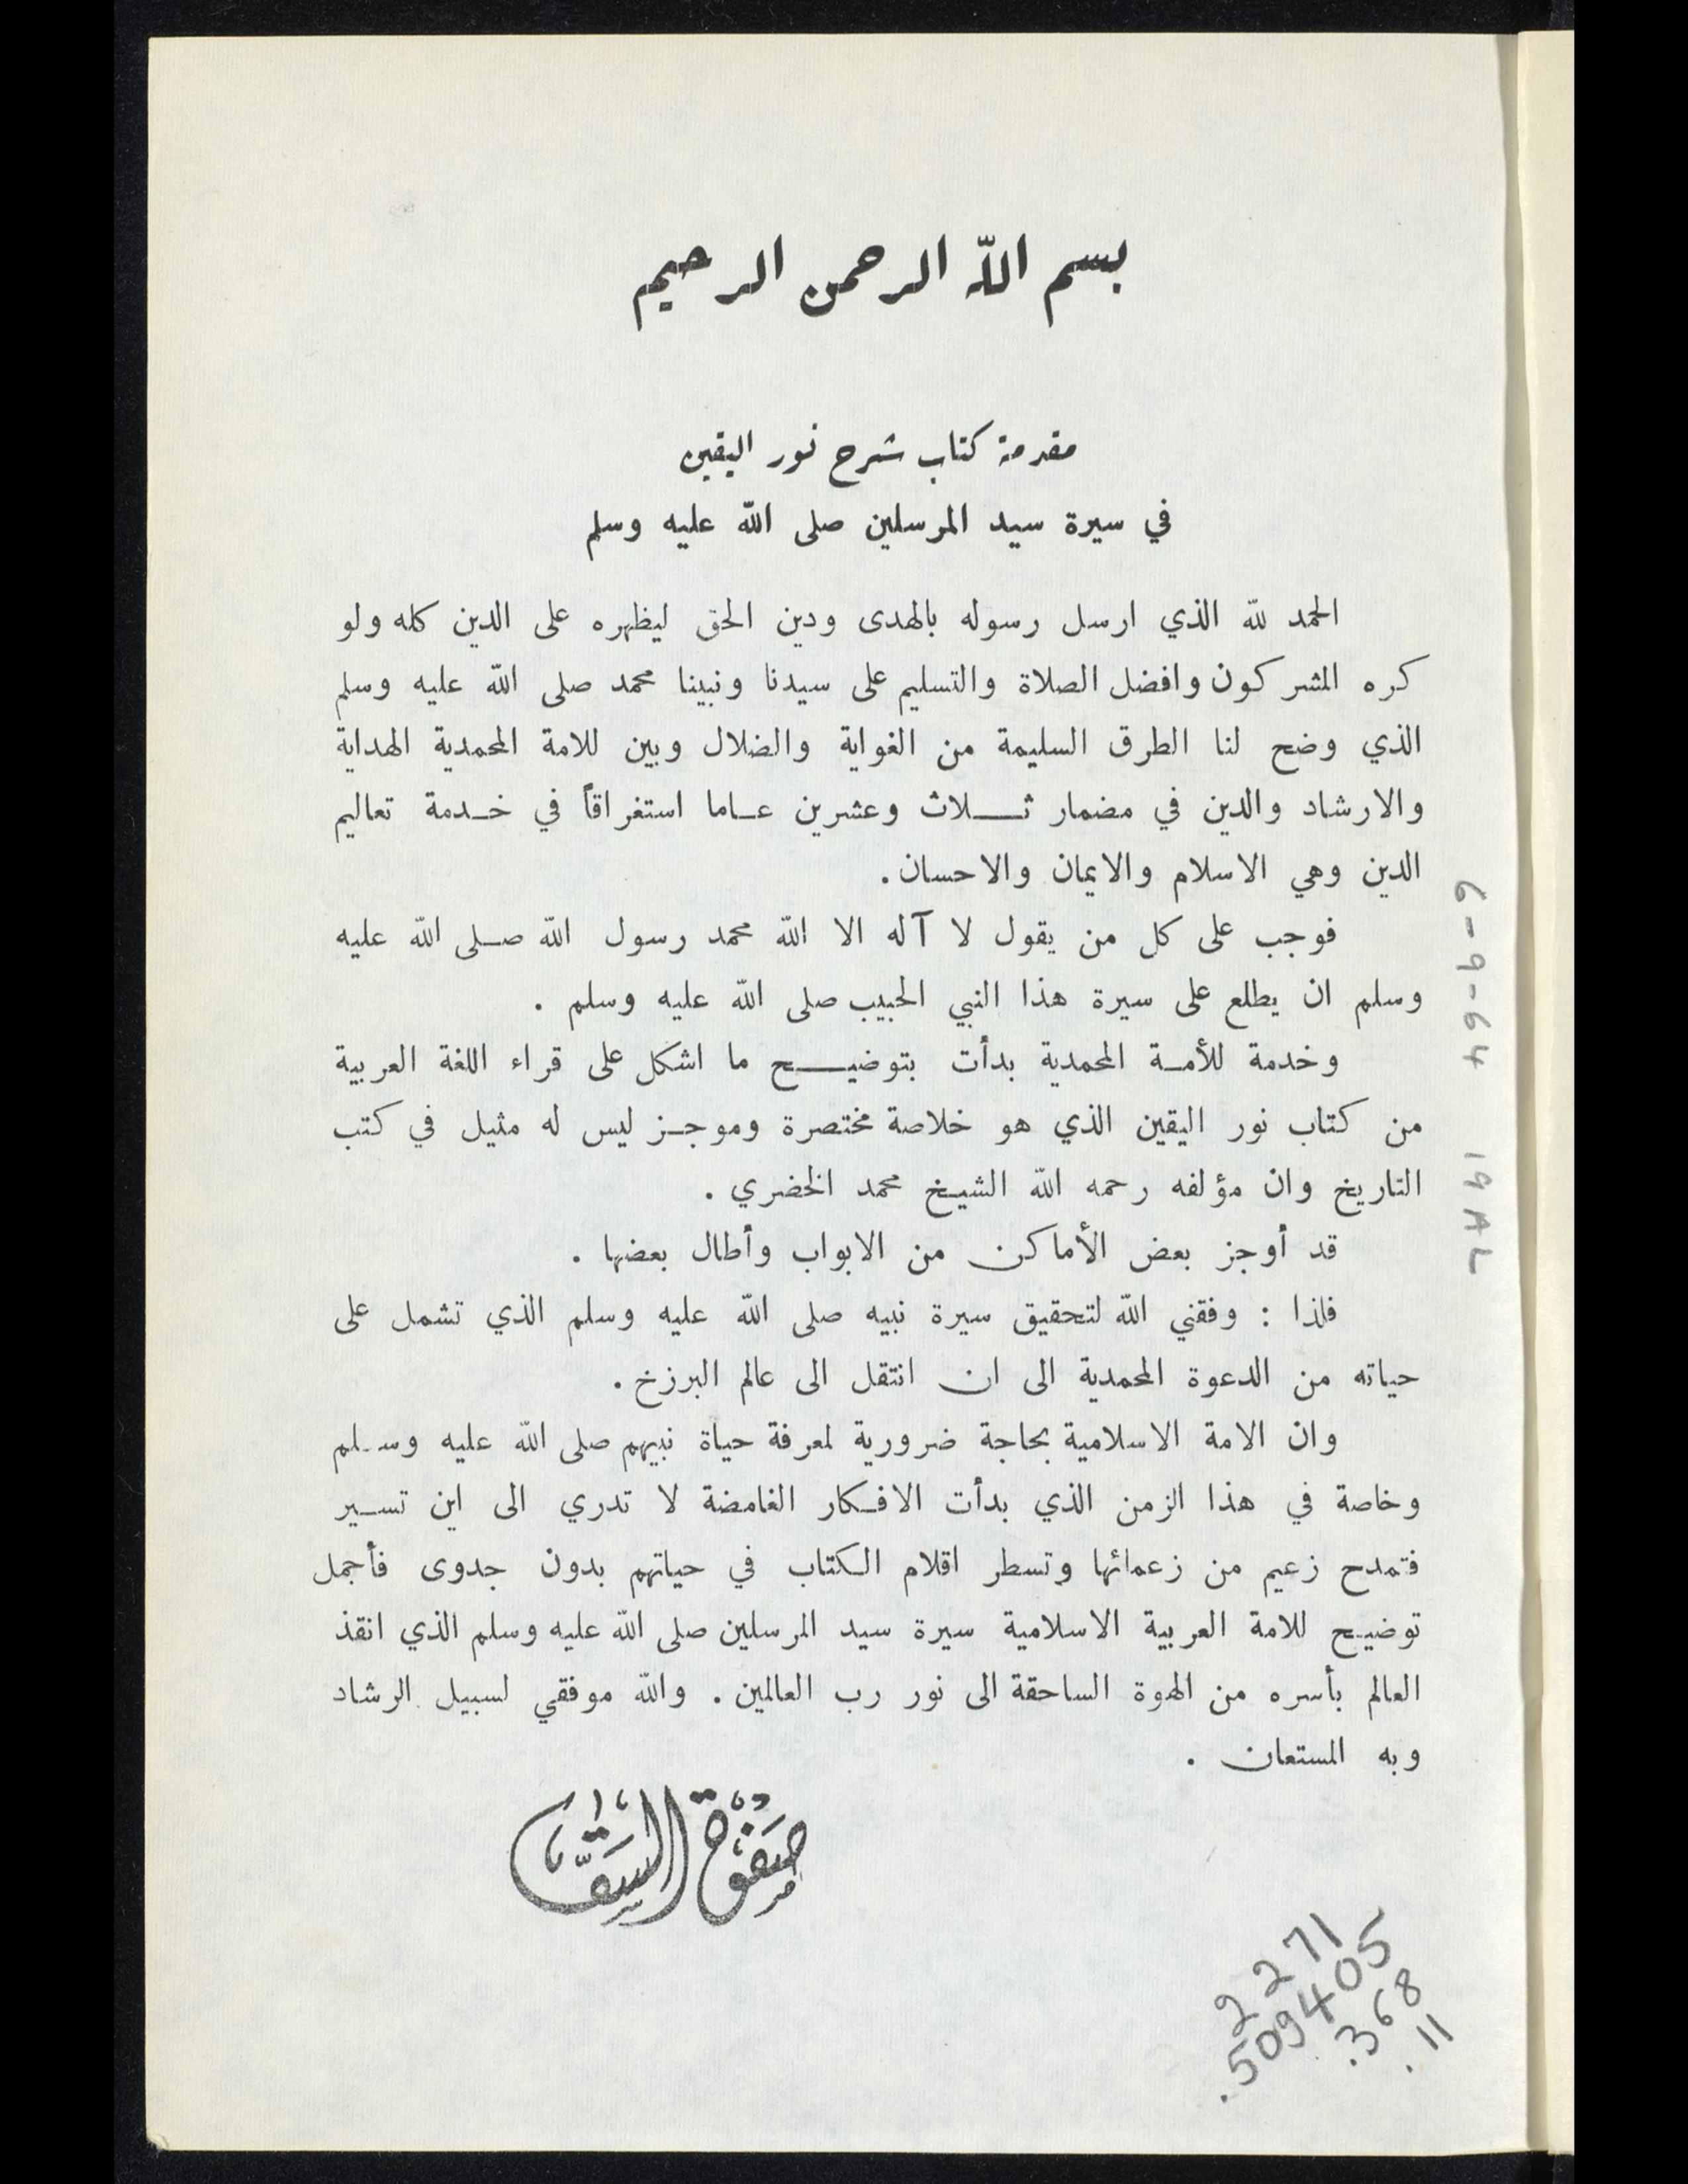 بسم اللّه الرحمن الرحيم
مقدمة كتاب شرح نور اليقين
في سيرة سيد المرسلين صلى اللّه عليه وسلم
الحمد للّه الذي ارسل رسوله بالهدى ودين الحق ليظهره على الدين كله ولو
كره المشركون وافضل الصلاة والتسليم على سيدنا ونبينا محمد صلى اللّه عليه وسلم
الذي وضح لنا الطرق السليمة من الغواية والضلال وبين للامة المحمدية الهداية
والارشاد والدين في مضمار ثلاث وعشرين عاما استغراقاً في خدمة تعاليم
الدين وهي الاسلام والايمان والاحسان .
فوجب على كل من يقول لا آله الا اللّه محمد رسول اللّه صلى اللّه عليه
وسلم ان يطلع على سيرة هذا النبي الحبيب صلى اللّه عليه وسلم .
وخدمة للأمة المحمدية بدأت بتوضيح ما اشكل على قراء اللغة العربية
من كتاب نور اليقين الذي هو خلاصة مختصرة وموجز ليس له مثيل في كتب
التاريخ وان مؤلفه رحمه اللّه الشيخ محمد الخضري .
قد أوجز بعض الأماكن من الابواب وأطال بعضها .
فلذا : وفقني اللّه لتحقيق سيرة نبيه صلى اللّه عليه وسلم الذي تشمل على
حياته من الدعوة المحمدية الى ان انتقل الى عالم البرزخ .
وان الامة الاسلامية بحاجة ضرورية لمعرفة حياة نبيهم صلى اللّه عليه وسلم
وخاصة في هذا الزمن الذي بدأت الافكار الغامضة لا تدري الى اين تسير
فتمدح زعيم من زعمائها وتسطر اقلام الكتاب في حياتهم بدون جدوى فأجمل
توضيح للامة العربية الاسلامية سيرة سيد المرسلين صلى اللّه عليه وسلم الذي انقذ
العالم بأسره من الهوة الساحقة الى نور رب العالمين . واللّه موفقي لسبيل الرشاد
وبه المستعان .
صفوة السقا
6-9-64 19AL
2271
.509405
.368
.11